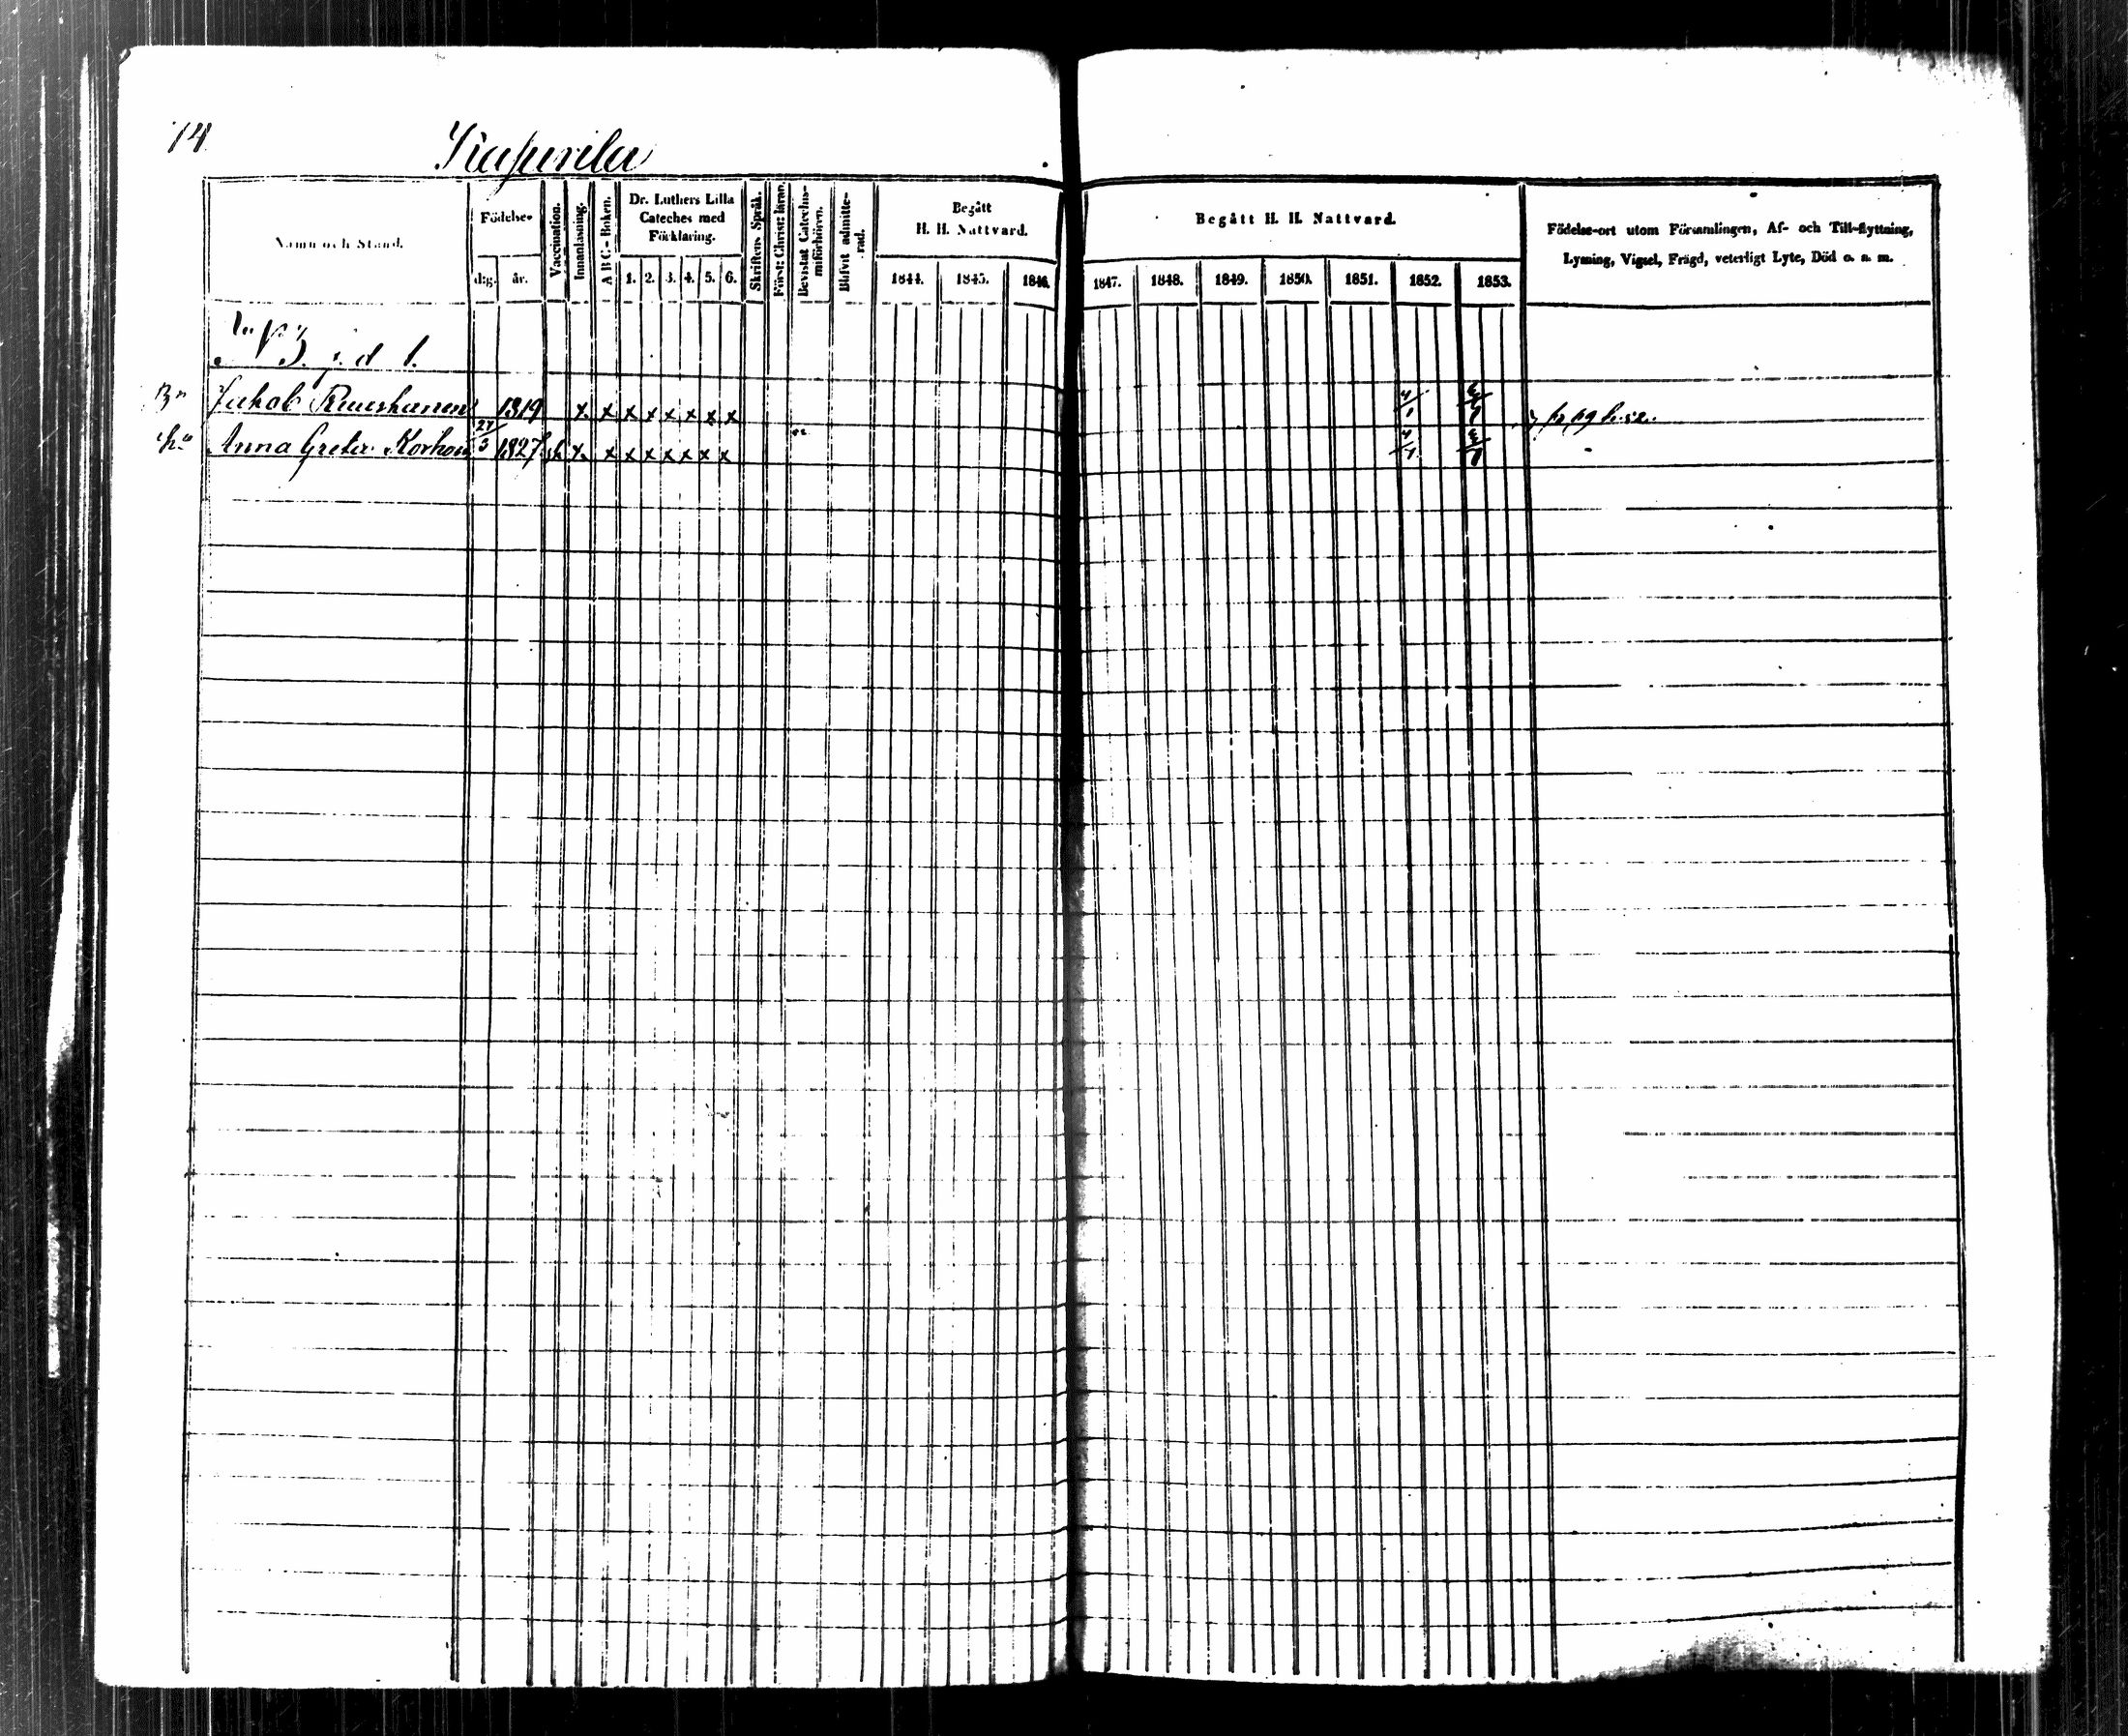 74
Namn och Stånd.
Födelse-
dag. år.
Vaccination.
Innanläsning.
A B C - Boken.
Dr. Luthers Lilla
Cateches med
Förklaring.
1. 2. 3. 4. 5. 6.
Skriftens Språk.
Bevistat Catechis-
miförhören.
Blifvit admitte-
rad.
Begått
H. H. Nattvard.
1844. 1845. 1846.
Begått H. H. Nattvard.
1847. 1848. 1849. 1850. 1851. 1852. 1853.
Födelse-ort utom Församlingen, Af- och Till-flyttning,
Lysning, Vigsel, Frägd, veterligt Lyte, Död o. s. m.
Jakob 1819 x x x x x x x x 4/1
Anna Greta Korhon 27/3 1827 x x x x x x x x 4/1